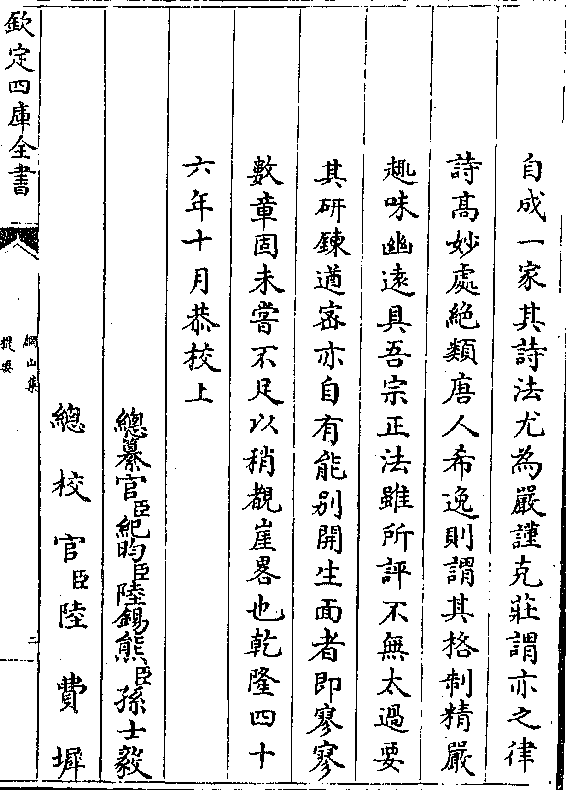 自成一家其詩法尤為嚴謹克莊謂亦之律
詩髙妙處絶類唐人希逸則謂其格制精嚴
趣味幽遠具吾宗正法雖所評不無太過要
其研鍊遒宻亦自有能别開生面者即寥寥
數章固未嘗不足以稍覩崖畧也乾隆四十
六年十月恭校上
總纂官臣紀昀臣陸錫熊臣孫士毅
總校官臣陸費墀
欽定四庫全書
網山集
提要
二